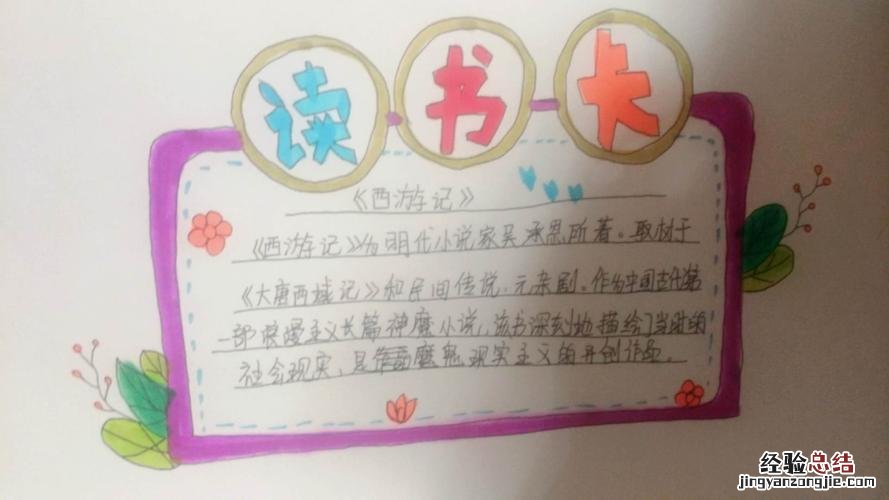 读书卡
《西游记》
《西游记》为明代小说家吴承恩所著。取材于
《大唐西域记》和民间传说、元杂剧。作为中国古代第
一部浪漫主义长篇神魔小说,该书深刻地描绘了当时的
社会现实,是魔幻现实主义的开创作品。
经验总结
jingyanzongjie.com